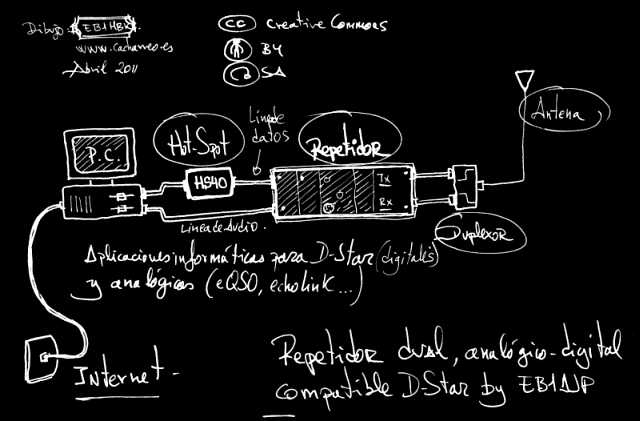 Dibujo: EB1HBK
www.cachameo.es
Abril 2011
cc Creative Commons
BY
SA
Antena
Hot-Spot
Linea de
datos
Repetidor
P.C.
HS40
Tx
Rx
Linea de Audio.
Duplexor
Aplicaciones informáticas para D-Star (digitales)
y analógicas (eQSO, echolink...)
Internet -
Repetidor dual, analógico-digital
compatible D-Star by EB1AJP